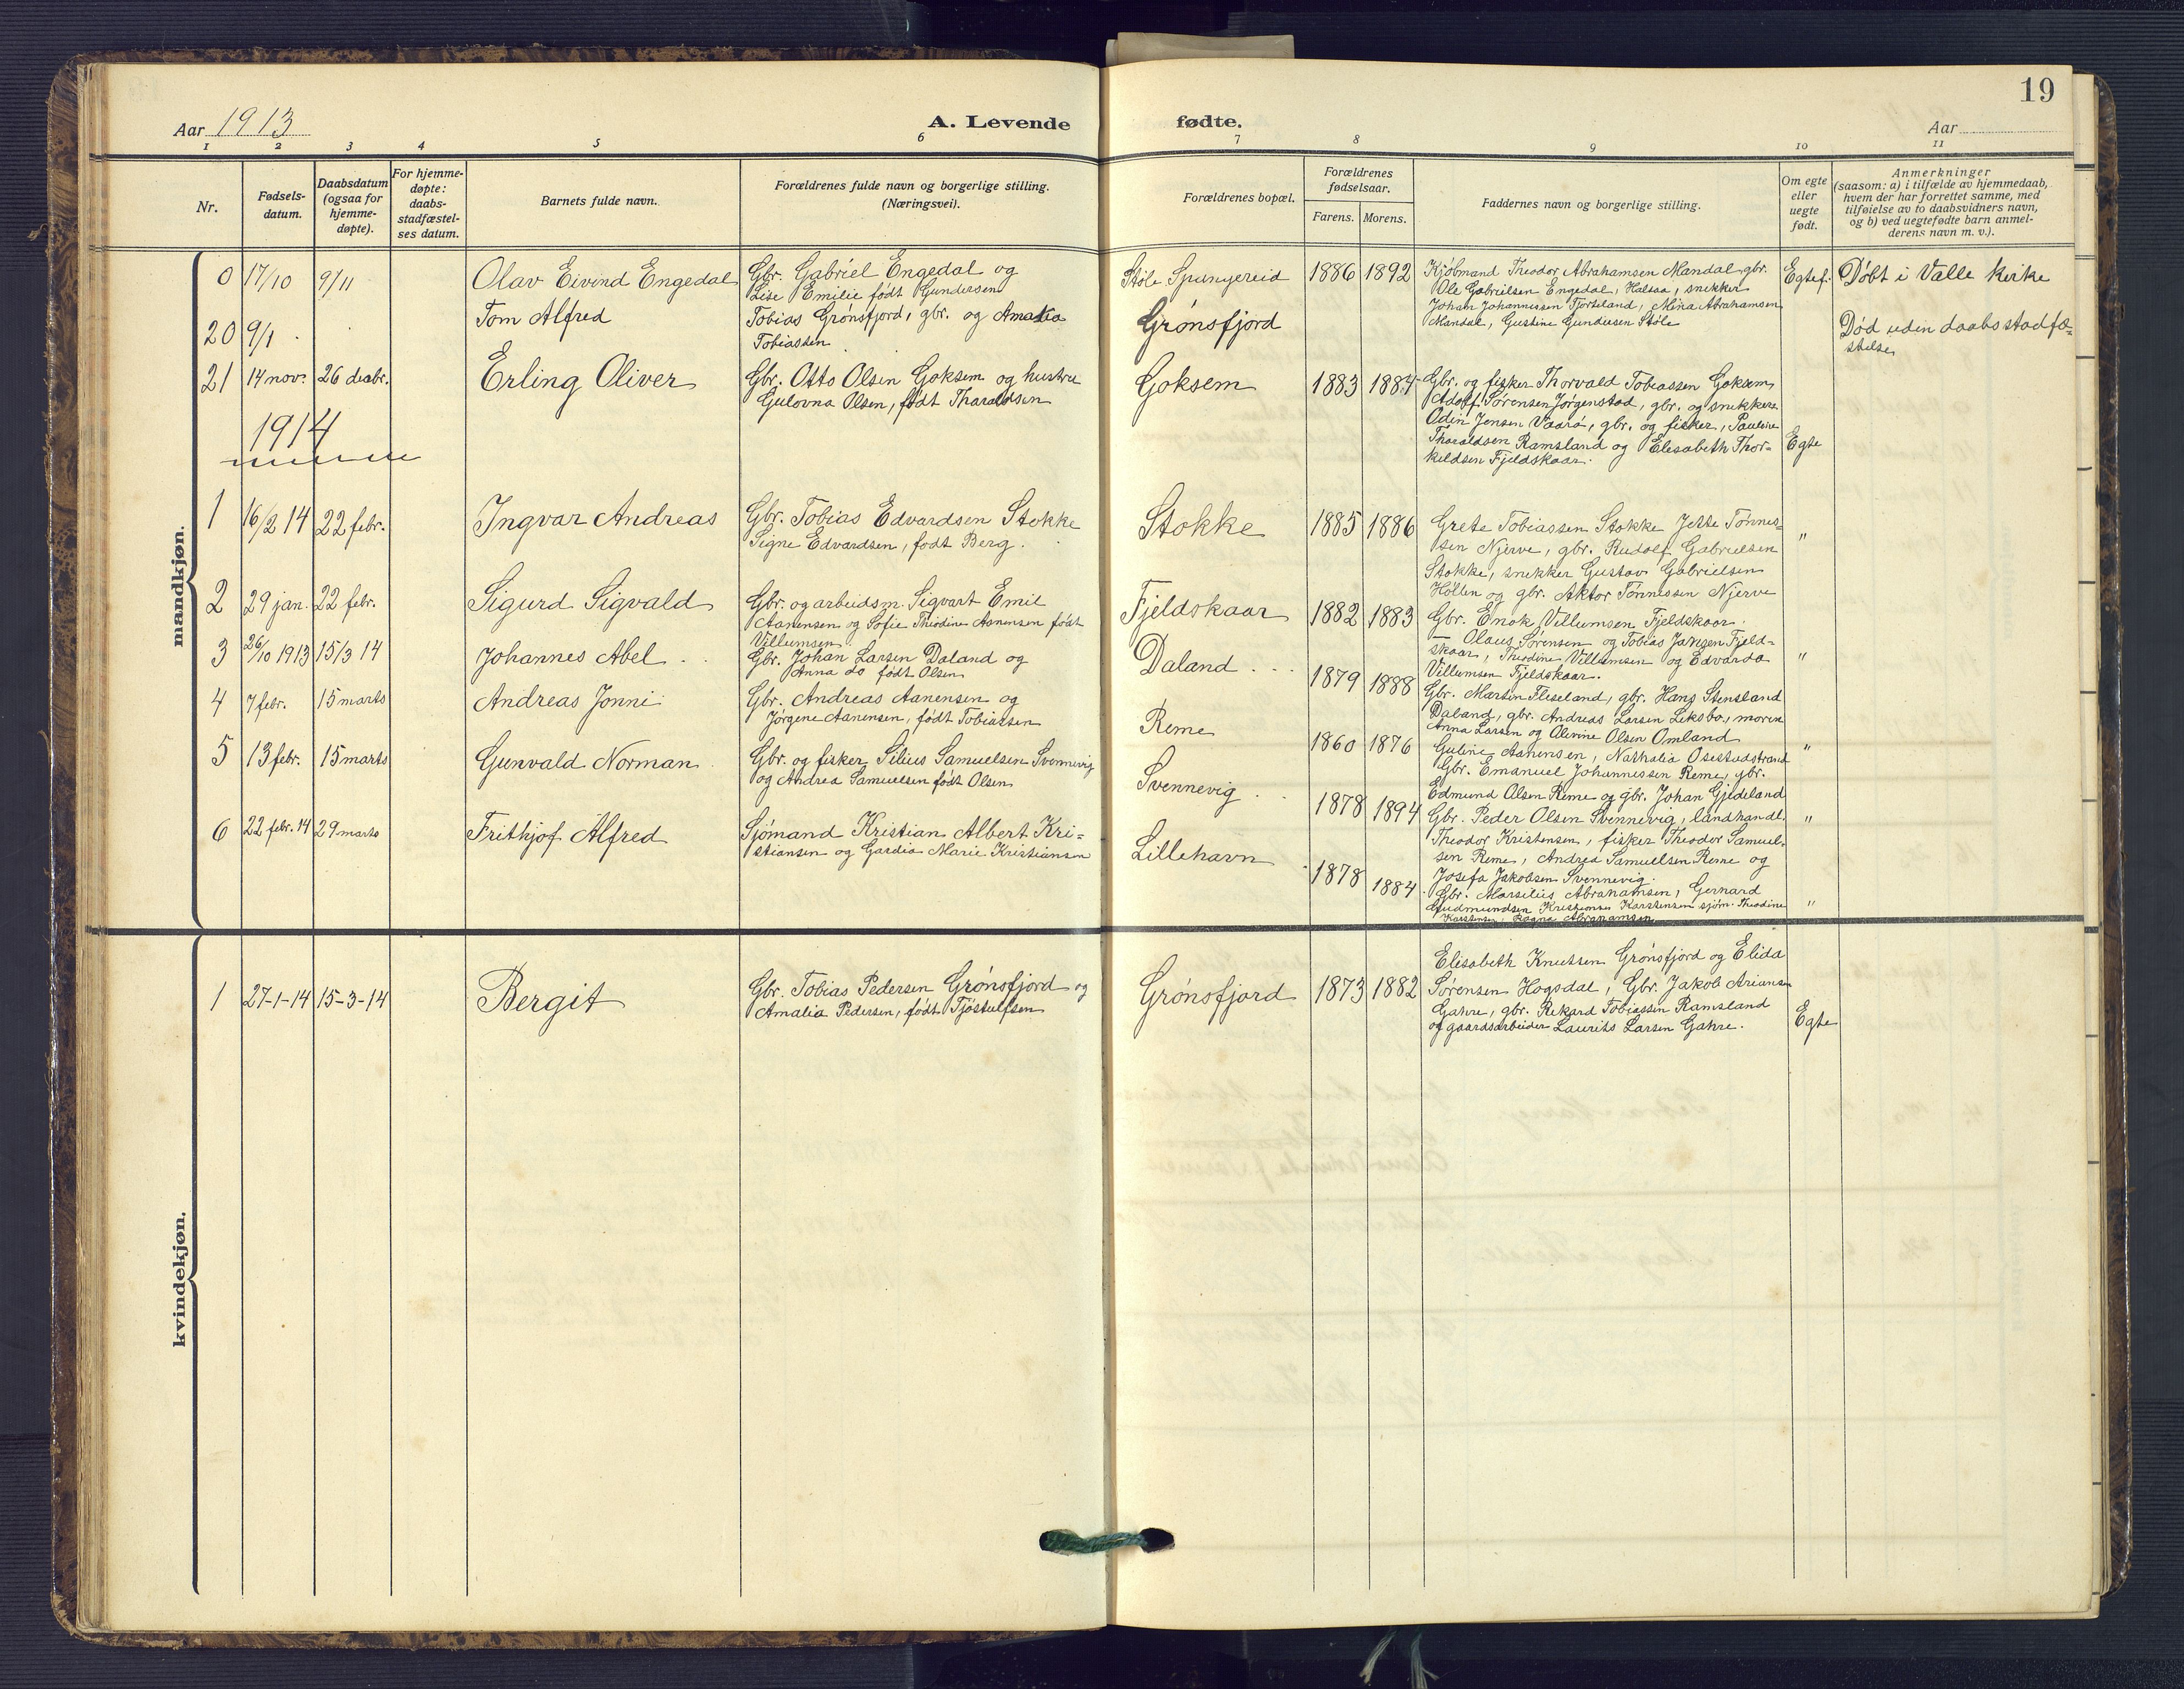 19
Aar 1913
A. Levende fødte.
Aar
1 2 3 4 5 6 7 8 9 10 11
Nr.
Fødsels-
datum.
Daabsdatum
(ogsaa for
hjemme-
døpte).
For hjemme-
døpte:
daabs-
stadfæstel-
ses datum.
Barnets fulde navn.
Forældrenes fulde navn og borgerlige stilling.
(Næringsvei).
Forældrenes bopæl.
Forældrenes
fødselsaar.
Farens. Morens.
Faddernes navn og borgerlige stilling.
Om egte
eller
uegte
født.
Anmerkninger
(saasom: a) i tilfælde av hjemmedaab,
hvem der har forrettet samme, med
tilføielse av to daabsvidners navn,
og b) ved uegtefødte barn anmel-
derens navn m. v.).
mandkjøn.
0 17/10 9/11 Olav Eivind Engedal
Gbr. Gabriel Engedal og
Lise Emilie født Gundersen
Støle Spangereid 1886 1892
Kjøbmand Theodor Abrahamsen Mandal, gbr.
Ole Gabrielsen Engedal, Halsaa, snekker
Johan Johannessen Fjorteland, Mina Abrahamsen
Mandal, Gustine Gundersen Støle
Egtef.
Døbt i Valle kirke
20 9/1 Tom Alfred
Tobias Grønsfjord, gbr. og Amalia
Tobiassen
Grønsfjord
Død uden daabsstadfæ-
stelse
21 14 nov. 26 decbr. Erling Oliver
Gbr. Otto Olsen Goksem og hustru
Gulovna Olsen, født Tharaldsen
Goksem 1883 1884
Gbr. og fisker Thorvald Tobiassen Goksem,
Adolf Sørensen Jørgenstad, gbr. og snekker
Odin Jensen Vaarø, gbr. og fisker, Pauline
Tharaldsen Ramsland og Elisabeth Thor-
kildsen Fjeldskaar.
Egte
1914
1 16/2 14 22 febr. Ingvar Andreas
Gbr. Tobias Edvardsen Stokke
Signe Edvardsen, født Berg.
Stokke 1885 1886
Grete Tobiassen Stokke Jette Tønnes-
sen Njerve, gbr. Rudolf Gabrielsen
Stokke, snekker Gustav Gabrielsen
Høllen og gbr. Aktor Tønnessen Njerve
"
2 29 jan. 22 febr. Sigurd Sigvald
Gbr. og arbeidsm. Sigvart Emil
Aanensen og Sofie Thodine Aanensen født
Villumsen
Fjeldskaar 1882 1883
Gbr. Enok Villumsen Fjeldskaar.
— Olaus Sørensen og Tobias Jansen Fjeld-
skaar, Thodine Villumsen og Edvarda
Villumsen Fjeldskaar.
"
3 26/10 1913 15/3 14 Johannes Abel
Gbr. Johan Larsen Daland og
Anna do født Olsen
Daland 1879 1888
Gbr. Martin Fliseland, gbr. Hans Stensland
Daland, gbr. Andreas Larsen Liksbo, moren
Anna Larsen og Olevine Olsen Omland
"
4 7 febr. 15 marts Andreas Jonni
Gbr. Andreas Aanensen og
Jørgene Aanensen, født Tobiassen
Reme 1860 1876
Guline Aanensen, Nathalia Osestadstrand
Gbr. Emanuel Johannessen Reme, gbr.
Edmund Olsen Reme og gbr. Johan Gjideland
"
5 13 febr. 15 marts Gunvald Norman
Gbr. og fisker Silius Samuelsen Svennevig
og Andrea Samuelsen født Olsen
Svennevig 1878 1894
Gbr. Peder Olsen Svennevig, landhandl.
Theodor Kristensen, fisker Theodor Samuel-
sen Reme, Andrea Samuelsen Reme og
Josefa Jakobsen Svennevig.
"
6 22 febr. 14 29 marts Frithjof Alfred
Sjømand Kristian Albert Kri-
stiansen og Gardia Marie Kristiansen
Lillehavn 1878 1884
Gbr. Marselius Abrahamsen, Gernard
Gudmundsen Kristianes Karstensen sjøm. Theodine
Karstensen, Ragna Abrahamsen
kvindekjøn.
1 27-1-14 15-3-14 Bergit
Gbr. Tobias Pedersen Grønsfjord og
Amalia Pedersen, født Tjøstulfsen
Grønsfjord 1873 1882
Elisabeth Knutsen Grønsfjord og Elida
Sørensen Hogsdal, Gbr. Jakob Ariansen
Gahre, gbr. Rikard Tobiassen Ramsland
og gaardsarbeider Laurits Larsen Gahre.
Egte